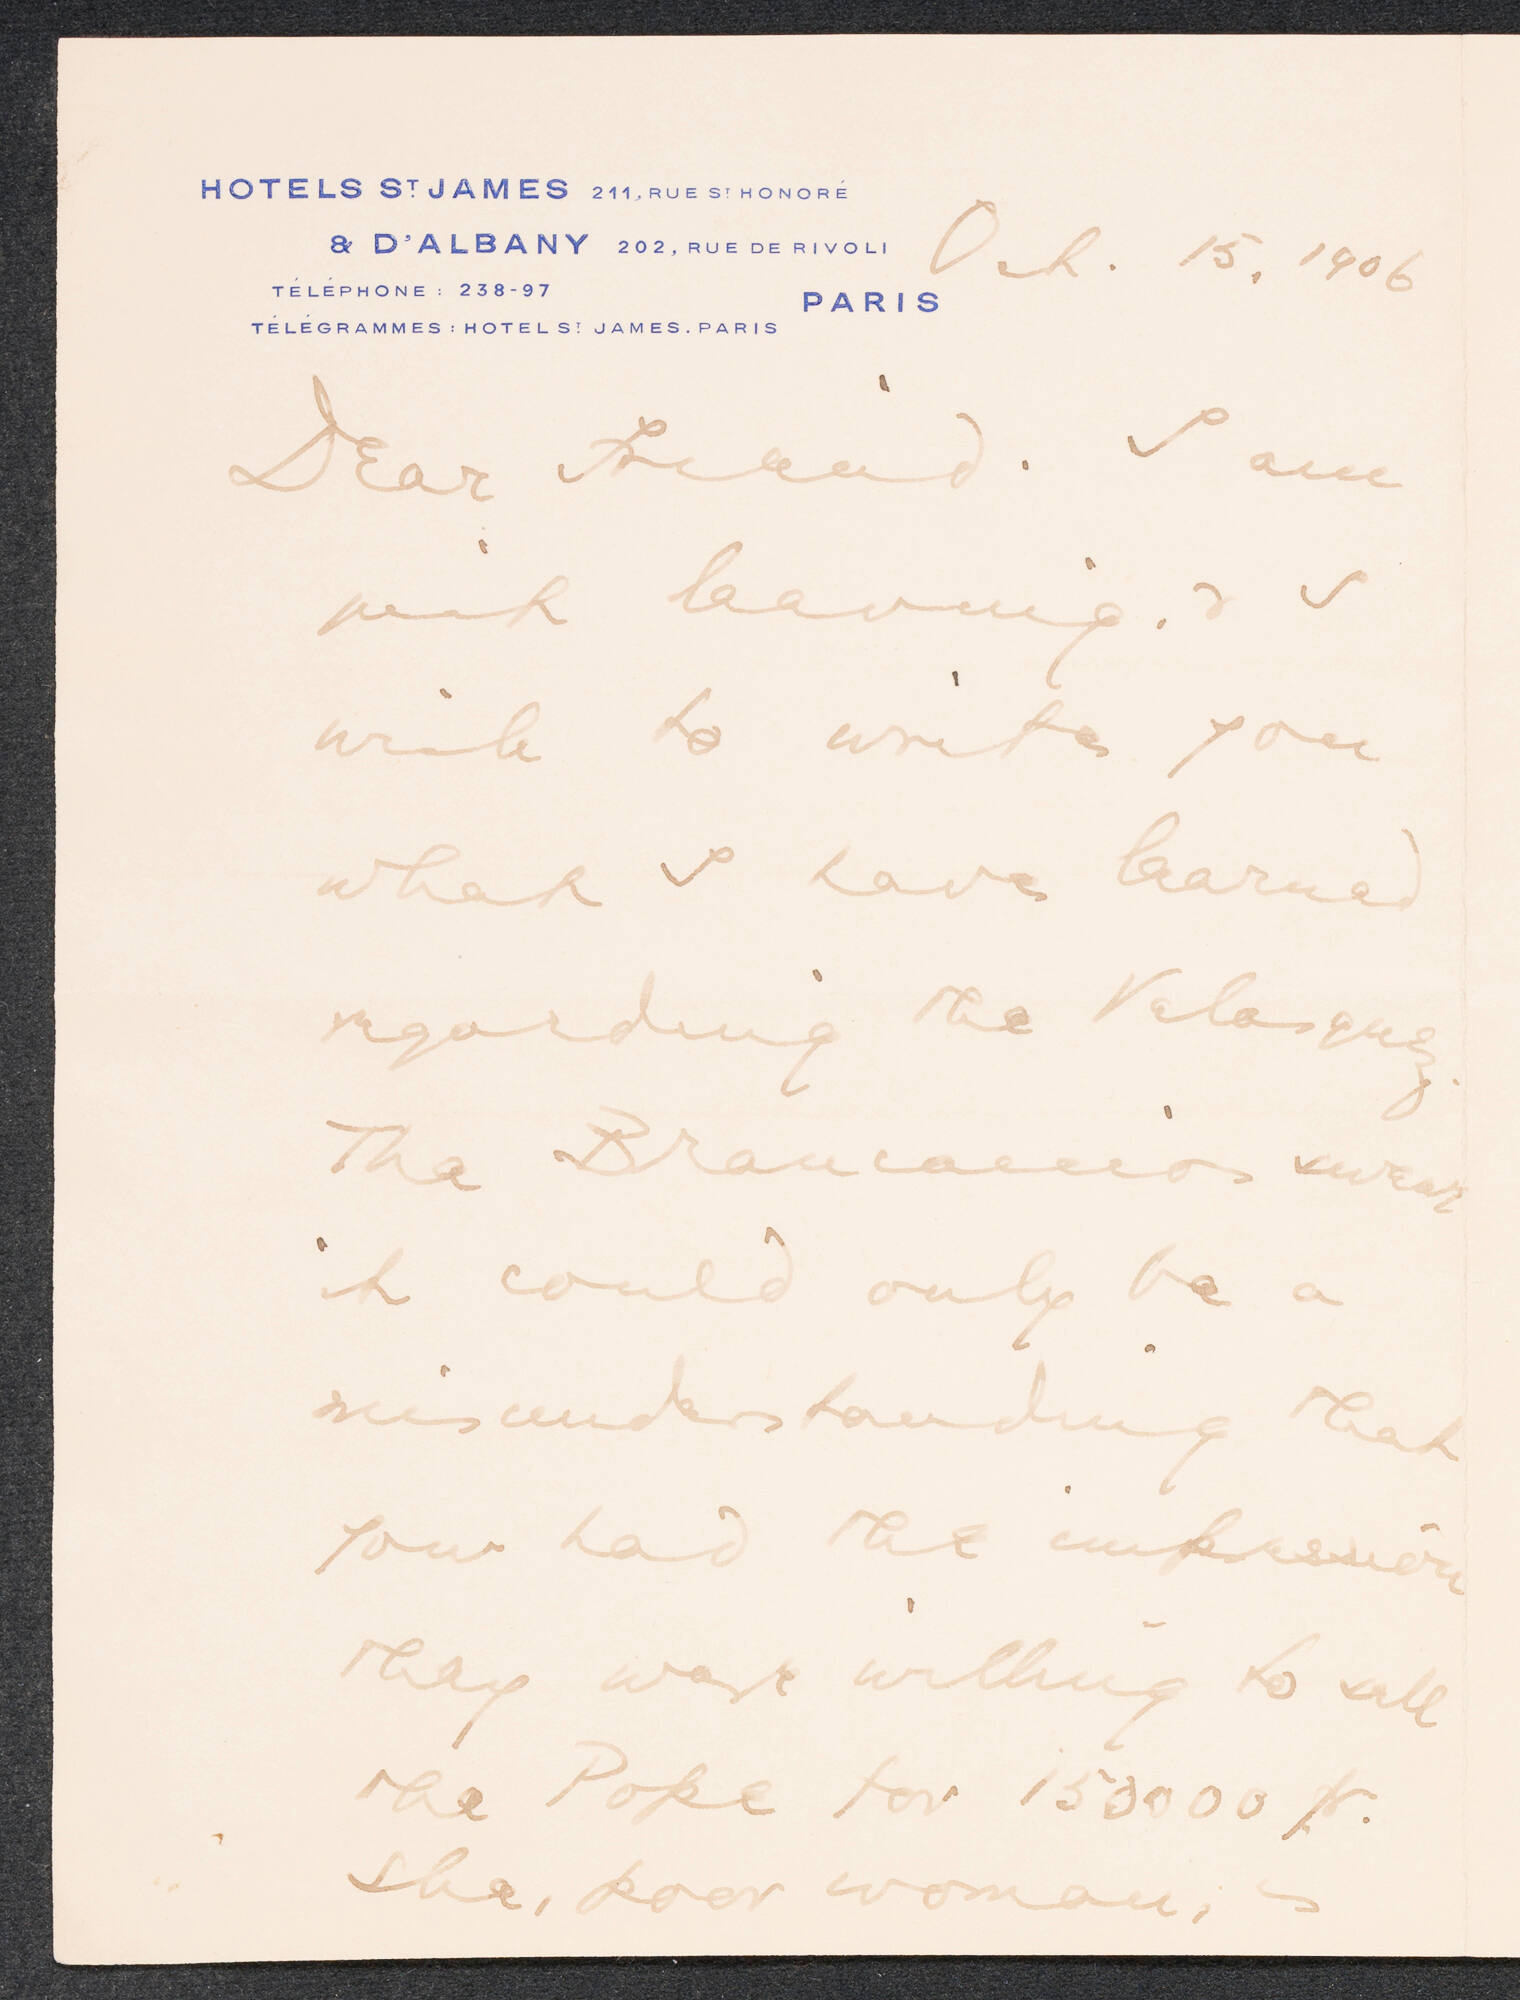 HOTELS ST. JAMES 211, RUE ST HONORÉ
& D'ALBANY 202, RUE DE RIVOLI
Oct. 15, 1906
TÉLÉPHONE : 238-97
PARIS
TÉLÉGRAMMES : HOTEL ST JAMES. PARIS
Dear Friend. I am
just leaving, & I
wish to write you
what I have learned
regarding the Velasquez.
The Brancaccios swear
it could only be a
misunderstanding that
you had the impression
they were willing to sell
the Pope for 150000 fr.
She, poor woman, is